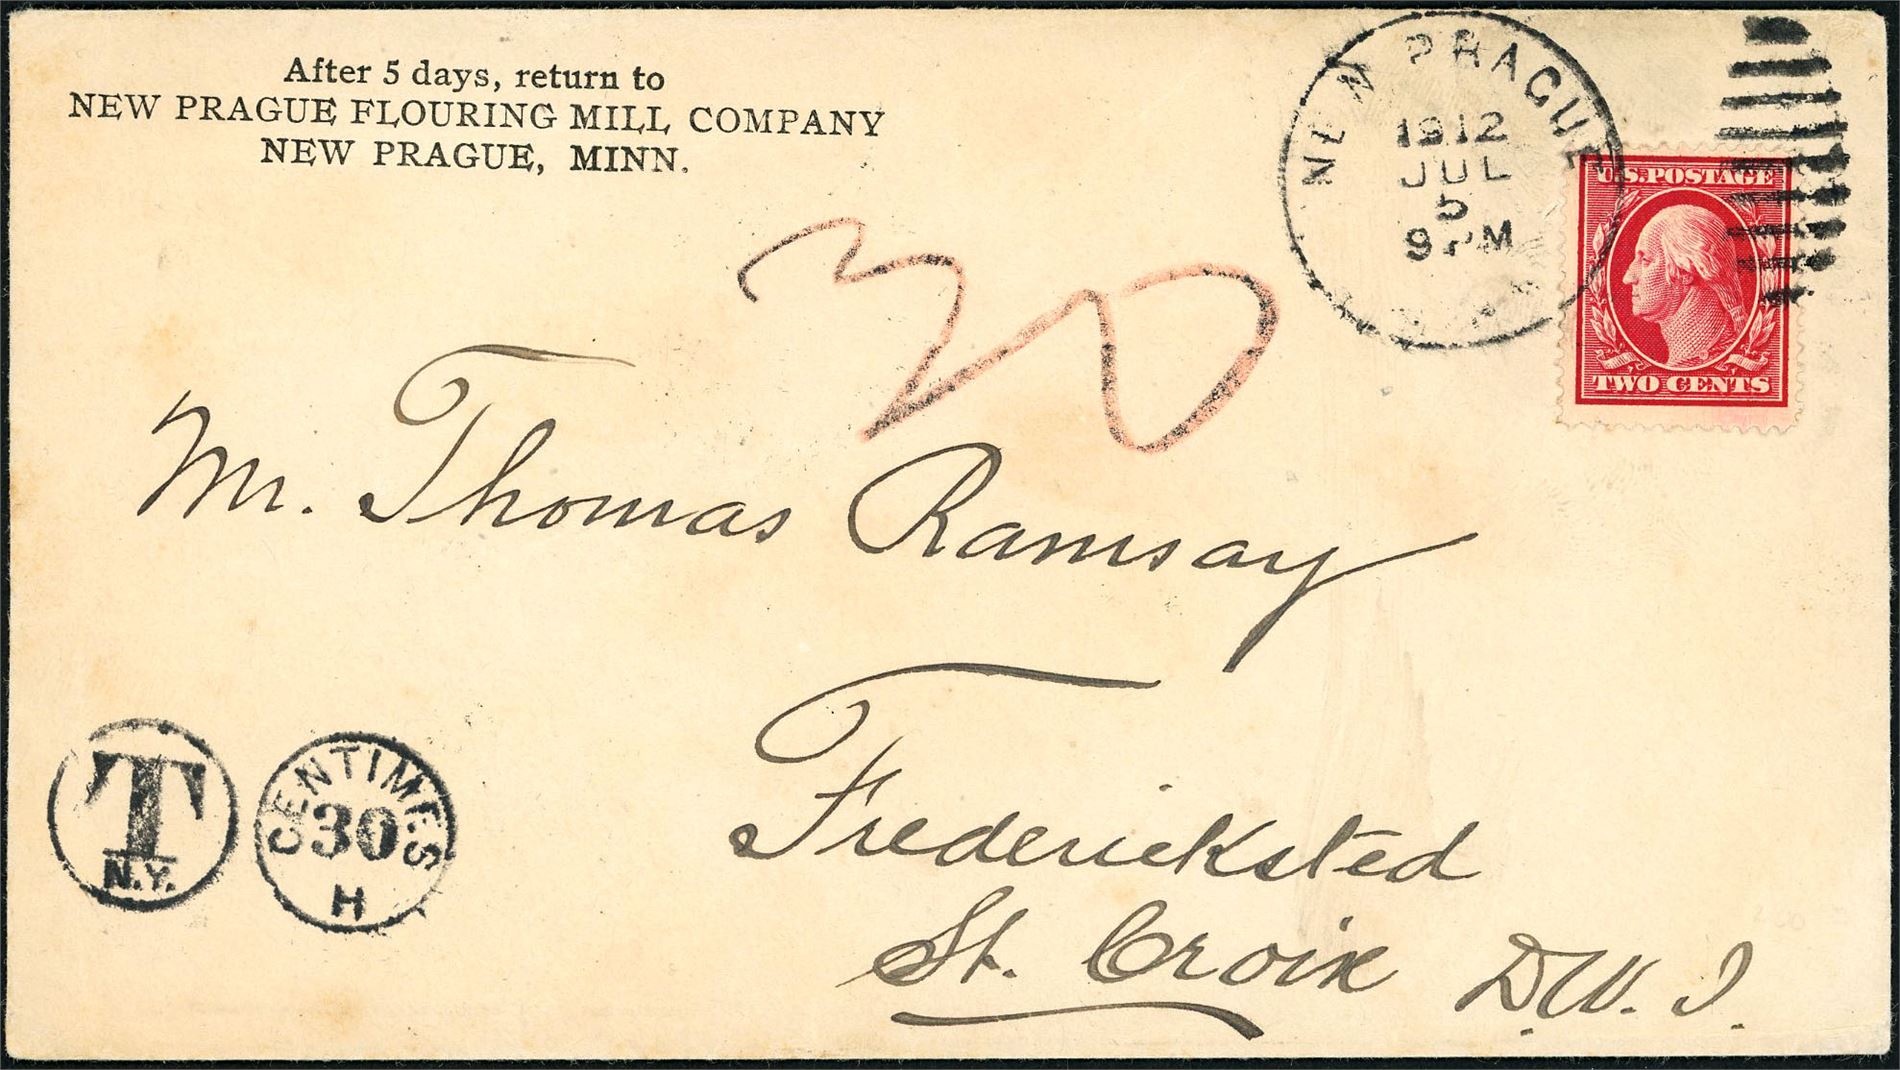 After 5 days, return to
NEW PRAGUE FLOURING MILL COMPANY
NEW PRAGUE, MINN.
NEW PRAGUE
1912
JUL
5
9 PM
U.S. POSTAGE
TWO CENTS
30
Mr. Thomas Ramsay
Fredericksted
St. Croix D.W.I.
T
N.Y.
CENTIMES
30
H